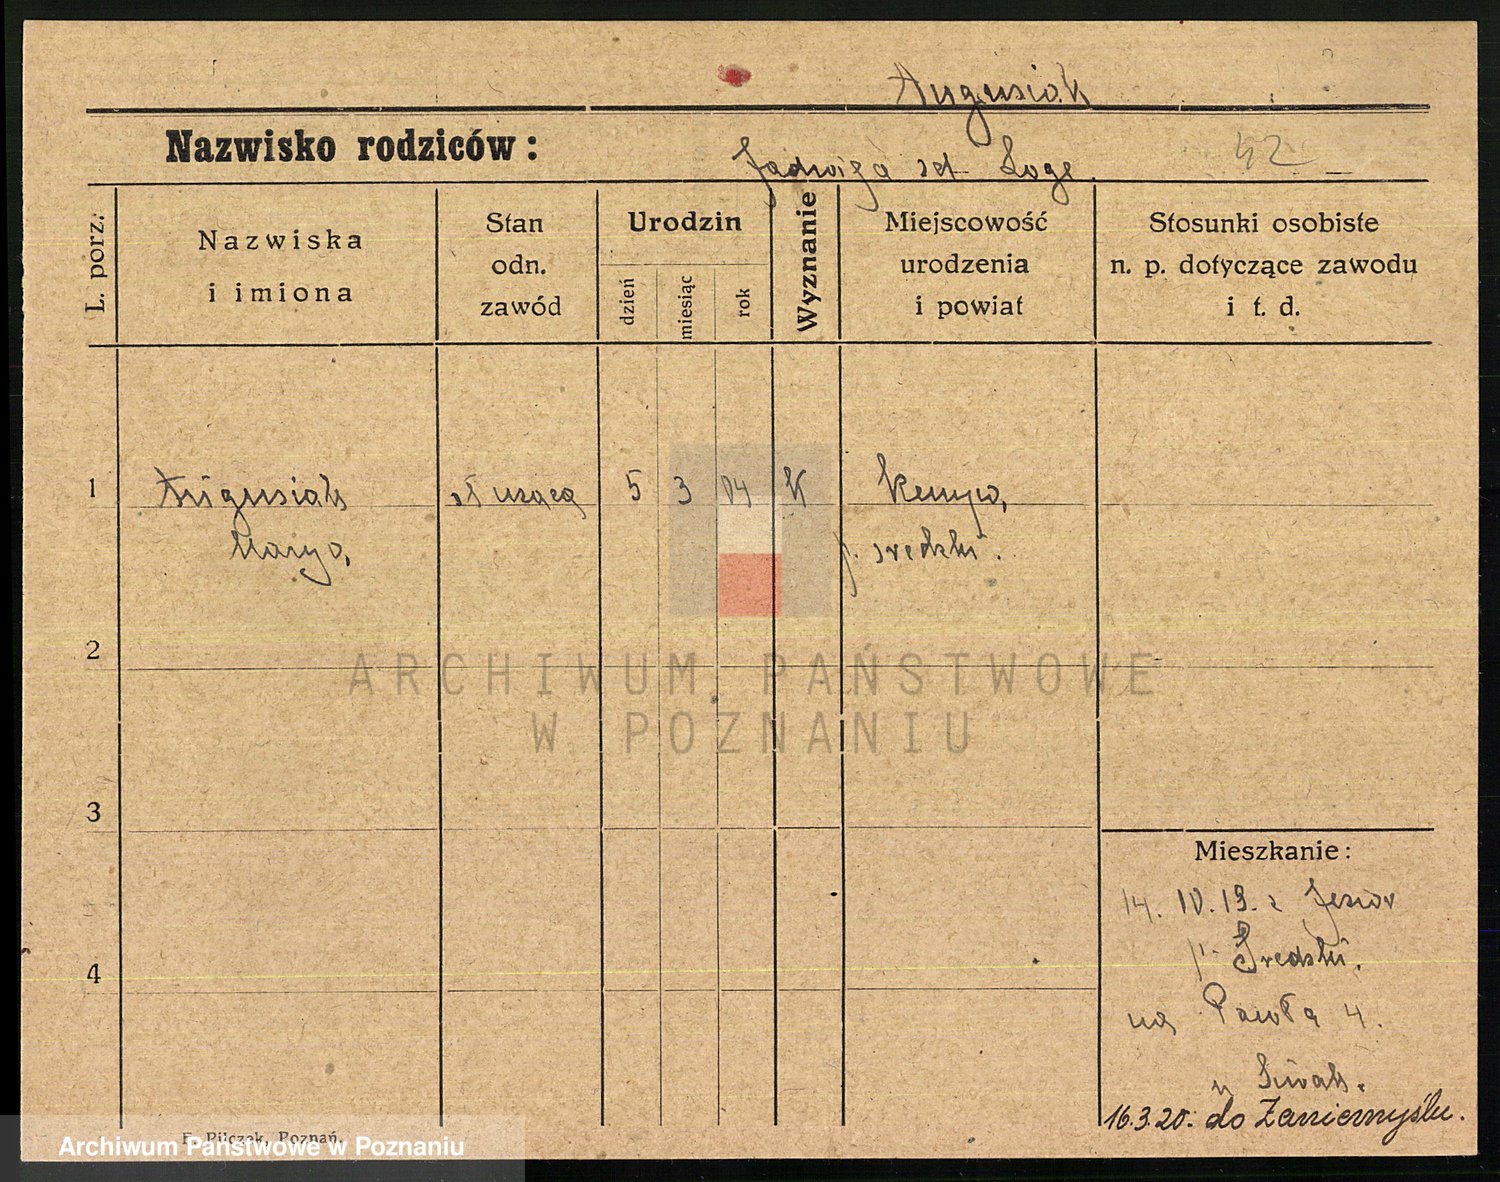 Augusiak
Nazwisko rodziców:
Jadwiga
42
L. porz:
Nazwiska
i imiona
Stan
odn.
zawód
Urodzin
dzień
miesiąc
rok
Wyznanie
Miejscowość
urodzenia
i powiat
Stosunki osobiste
n. p. dotyczące zawodu
i t. d.
1
Augusiak
służąca
5
3
04
K
Kempa,
Marya,
p. średzki.
2
ARCHIWUM PAŃSTWOWE
W POZNANIU
3
Mieszkanie:
14. IV. 19. z Jezior
p. Średzki.
4
na Pawła 4.
u
16.3.20. do Zaniemyślu.
F. Pilczek, Poznań.
Archiwum Państwowe w Poznaniu